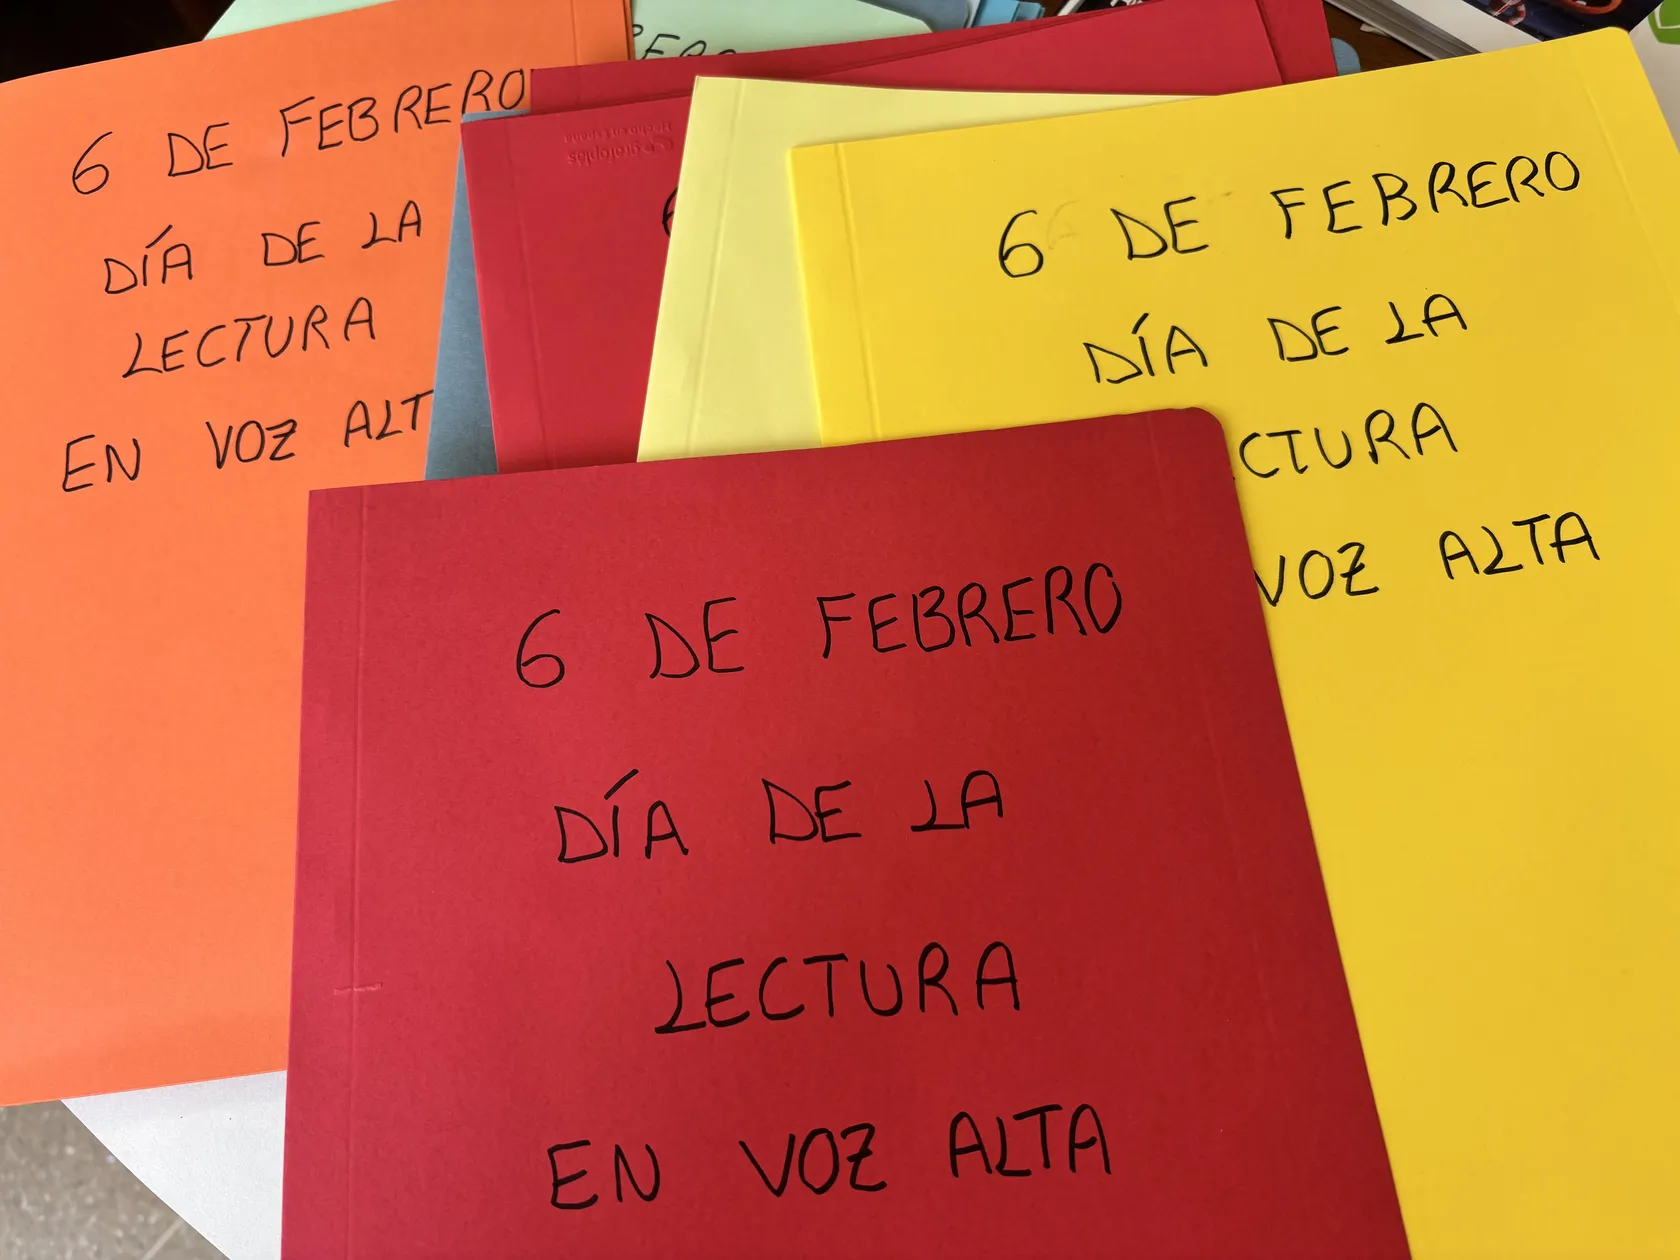 6 DE FEBRERO
DÍA DE LA
LECTURA
EN VOZ ALT
6 DE FEBRERO
DÍA DE LA
CTURA
VOZ ALTA
grafoplás
Hecho en España
6 DE FEBRERO
DÍA DE LA
LECTURA
EN VOZ ALTA